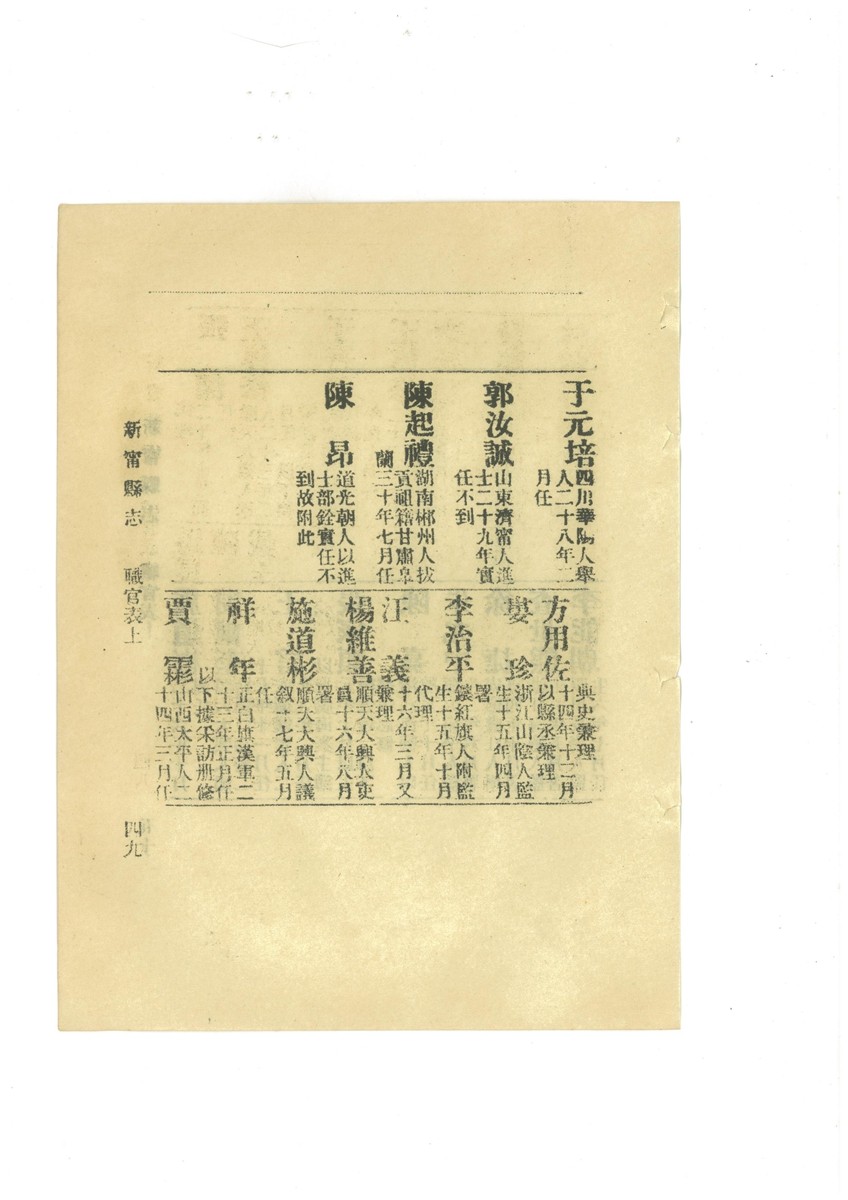 于元培
四川華陽人舉
人二十八年二
月任
郭汝誠
山東濟甯人進
士二十九年實
任不到
陳起禮
湖南郴州人拔
貢祖籍甘肅皋
蘭三十年七月任
陳昂
道光朝人以進
士部銓實任不
到故附此
方用佐
典史兼理
十四年十二月
以縣丞兼理
婁珍
浙江山陰人監
生十五年四月
署
李治平
鑲紅旗人附監
生十五年十月
代理
汪義
十六年三月又
兼理
楊維善
順天大興人吏
員十六年八月
署
施道彬
順天大興人議
敘十七年五月
任
祥年
正白旗漢軍二
十三年正月任
以下據采訪冊修
賈霖
山西太平人二
十四年三月任
新甯縣志 職官表上 四九